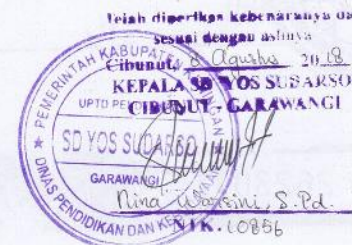 Telah diperiksa kebenaranya da
sesuai dengan aslinya
Cibunut, 8 Agustus 2018
KEPALA SD YOS SUDARSO
CIBUNUT - GARAWANGI
PEMERINTAH KABUPATEN
UPTD
SD YOS SUDARSO
GARAWANGI
DINAS PENDIDIKAN DAN
Nina, S.Pd.
NIK. 10856